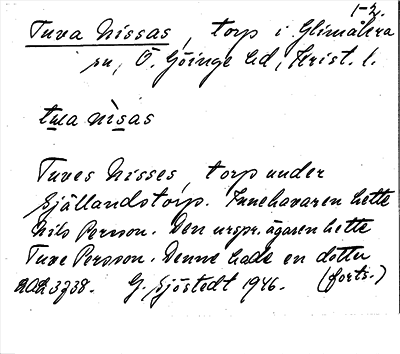 1-2.
Tuva Nissas, torp i Glimåkra
sn, Ö. Göinge hd, Krist. l.
tua nìsas
Tuves Nisses, torp under
Själlandstorp. Innehavaren hette
Nils Persson. Den urspr. ägaren hette
Tuve Persson. Denne hade en dotter
3738. G. Sjöstedt 1946. (forts.)